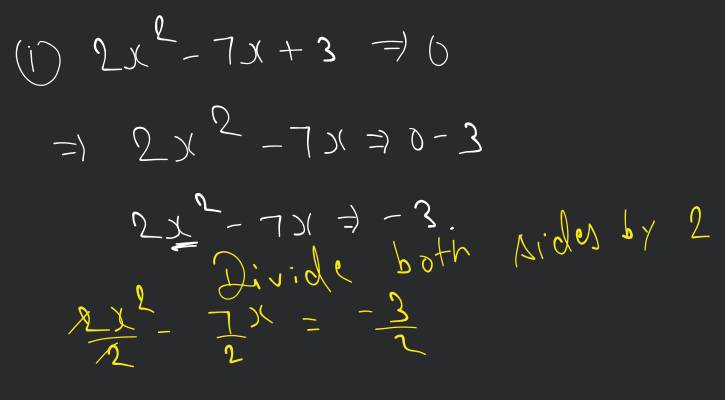 (i) 2x² - 7x + 3 ⇒ 0
⇒ 2x² - 7x ⇒ 0 - 3
2x² - 7x ⇒ -3.
Divide both sides by 2
2x²/2 - 7x/2 = -3/2